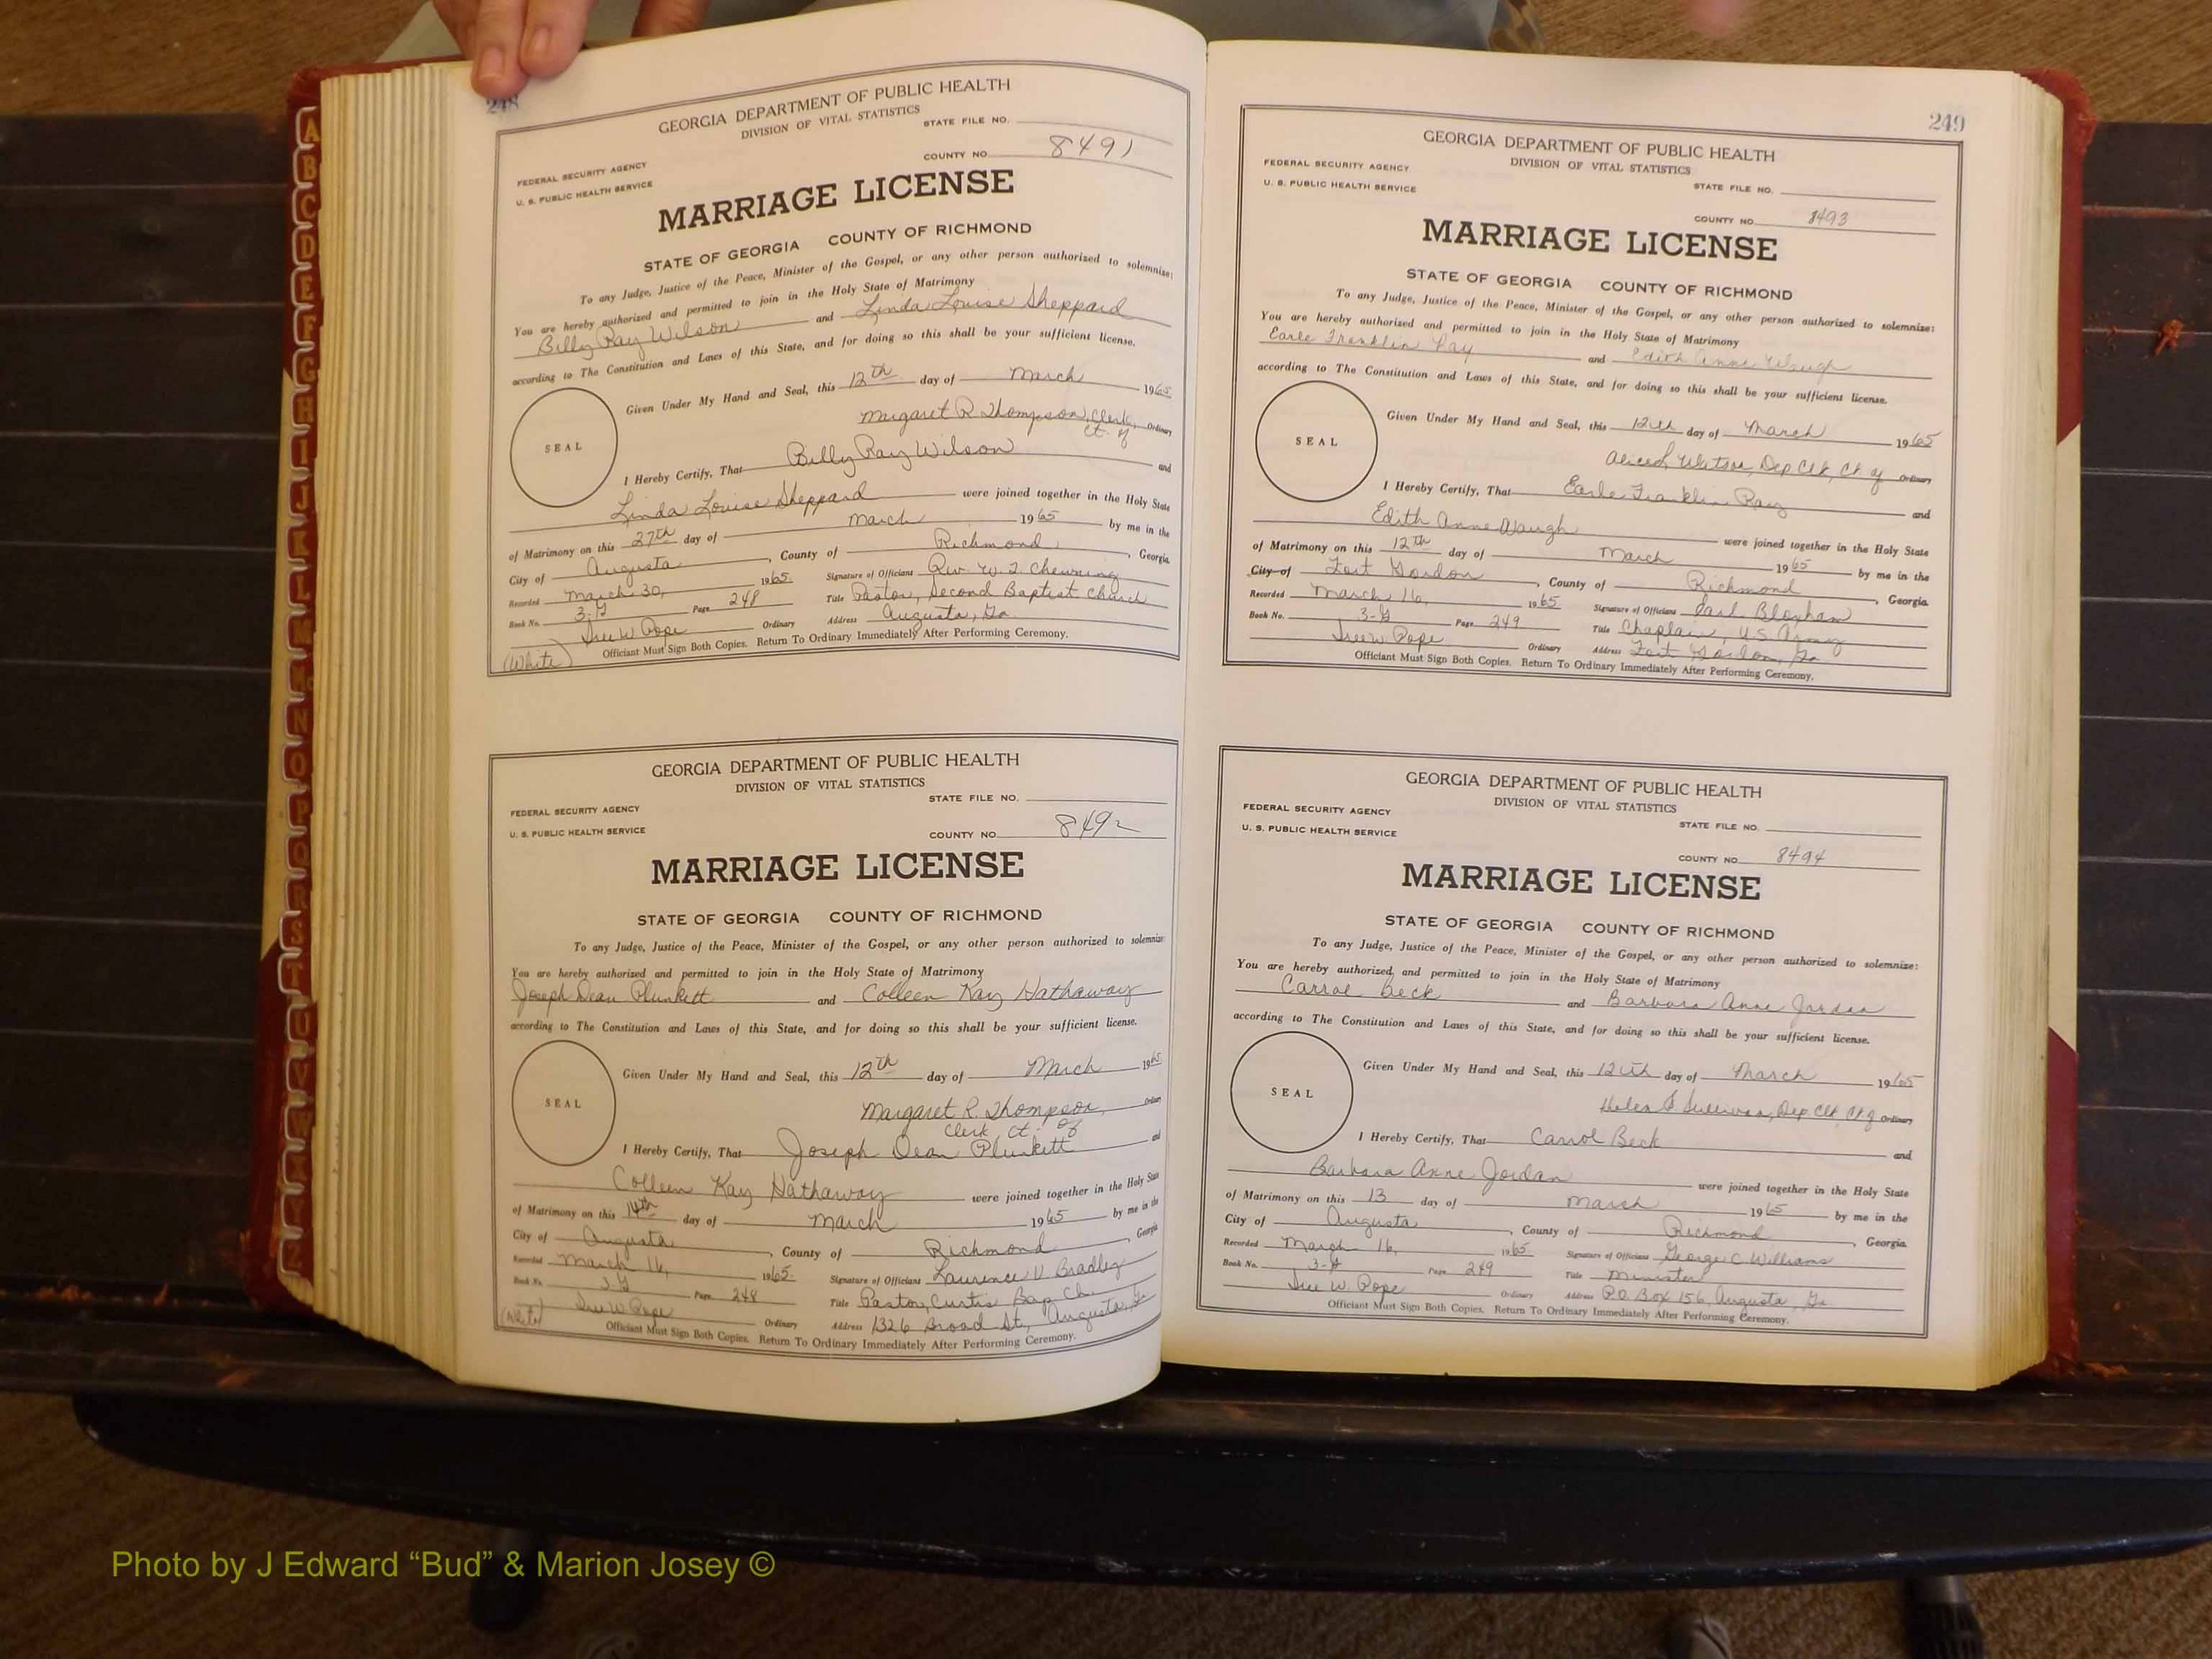 248
GEORGIA DEPARTMENT OF PUBLIC HEALTH
DIVISION OF VITAL STATISTICS
STATE FILE NO.
FEDERAL SECURITY AGENCY
U. S. PUBLIC HEALTH SERVICE
COUNTY NO. 8491
MARRIAGE LICENSE
STATE OF GEORGIA COUNTY OF RICHMOND
To any Judge, Justice of the Peace, Minister of the Gospel, or any other person authorized to solemnize:
You are hereby authorized and permitted to join in the Holy State of Matrimony
Billy Ray Wilson and Linda Louise Sheppard
according to The Constitution and Laws of this State, and for doing so this shall be your sufficient license.
Given Under My Hand and Seal, this 12th day of March 1965
SEAL
Margaret R. Thompson, Clerk, Ct. of Ordinary
I Hereby Certify, That Billy Ray Wilson and
Linda Louise Sheppard were joined together in the Holy State
of Matrimony on this 27th day of March 1965 by me in the
City of Augusta, County of Richmond, Georgia.
Recorded March 30, 1965. Signature of Officiant Rev. W. T. Chewning
Book No. 3-G Page 248 Title Pastor, Second Baptist Church
Sue W. Pope Ordinary Address Augusta, Ga
(White) Officiant Must Sign Both Copies. Return To Ordinary Immediately After Performing Ceremony.
GEORGIA DEPARTMENT OF PUBLIC HEALTH
DIVISION OF VITAL STATISTICS
STATE FILE NO.
FEDERAL SECURITY AGENCY
U. S. PUBLIC HEALTH SERVICE
COUNTY NO. 8492
MARRIAGE LICENSE
STATE OF GEORGIA COUNTY OF RICHMOND
To any Judge, Justice of the Peace, Minister of the Gospel, or any other person authorized to solemnize
You are hereby authorized and permitted to join in the Holy State of Matrimony
Joseph Dean Plunkett and Colleen Kay Hathaway
according to The Constitution and Laws of this State, and for doing so this shall be your sufficient license.
Given Under My Hand and Seal, this 12th day of March 1965
SEAL
Margaret R. Thompson, Ordinary
Clerk Ct. of
I Hereby Certify, That Joseph Dean Plunkett and
Colleen Kay Hathaway were joined together in the Holy State
of Matrimony on this 14th day of March 1965 by me in the
City of Augusta, County of Richmond Georgia
Recorded March 16, 1965. Signature of Officiant Laurence V Bradley
Book No. 3-G Page 248 Title Pastor, Curtis Bap Ch.
Sue W. Pope Ordinary Address 1326 Broad St., Augusta, Ga
(White) Officiant Must Sign Both Copies. Return To Ordinary Immediately After Performing Ceremony.
249
GEORGIA DEPARTMENT OF PUBLIC HEALTH
DIVISION OF VITAL STATISTICS
FEDERAL SECURITY AGENCY
U. S. PUBLIC HEALTH SERVICE
STATE FILE NO.
COUNTY NO. 8493
MARRIAGE LICENSE
STATE OF GEORGIA COUNTY OF RICHMOND
To any Judge, Justice of the Peace, Minister of the Gospel, or any other person authorized to solemnize:
You are hereby authorized and permitted to join in the Holy State of Matrimony
Earle Franklin Ray and Edith Anne Waugh
according to The Constitution and Laws of this State, and for doing so this shall be your sufficient license.
Given Under My Hand and Seal, this 12th day of March 1965
SEAL
Watson, Dep Clk, Ct. of Ordinary
I Hereby Certify, That Earle Franklin Ray and
Edith Anne Waugh were joined together in the Holy State
of Matrimony on this 12th day of March 1965 by me in the
City of Fort Gordon, County of Richmond, Georgia.
Recorded March 16, 1965 Signature of Officiant Earl Bloxham
Book No. 3-G Page 249 Title Chaplain, U.S. Army
Sue W. Pope Ordinary Address Fort Gordon, Ga
Officiant Must Sign Both Copies. Return To Ordinary Immediately After Performing Ceremony.
GEORGIA DEPARTMENT OF PUBLIC HEALTH
DIVISION OF VITAL STATISTICS
FEDERAL SECURITY AGENCY
U. S. PUBLIC HEALTH SERVICE
STATE FILE NO.
COUNTY NO. 8494
MARRIAGE LICENSE
STATE OF GEORGIA COUNTY OF RICHMOND
To any Judge, Justice of the Peace, Minister of the Gospel, or any other person authorized to solemnize:
You are hereby authorized and permitted to join in the Holy State of Matrimony
Carrol Beck and Barbara Anne Jordan
according to The Constitution and Laws of this State, and for doing so this shall be your sufficient license.
Given Under My Hand and Seal, this 12th day of March 1965
SEAL
Helen S Sullivan, Dep Clk, Ct. of Ordinary
I Hereby Certify, That Carrol Beck and
Barbara Anne Jordan were joined together in the Holy State
of Matrimony on this 13 day of March 1965 by me in the
City of Augusta, County of Richmond, Georgia.
Recorded March 16, 1965 Signature of Officiant George C. Williams
Book No. 3-G Page 249 Title Minister
Sue W. Pope Ordinary Address P.O. Box 156, Augusta, Ga
Officiant Must Sign Both Copies. Return To Ordinary Immediately After Performing Ceremony.
Photo by J Edward “Bud” & Marion Josey ©